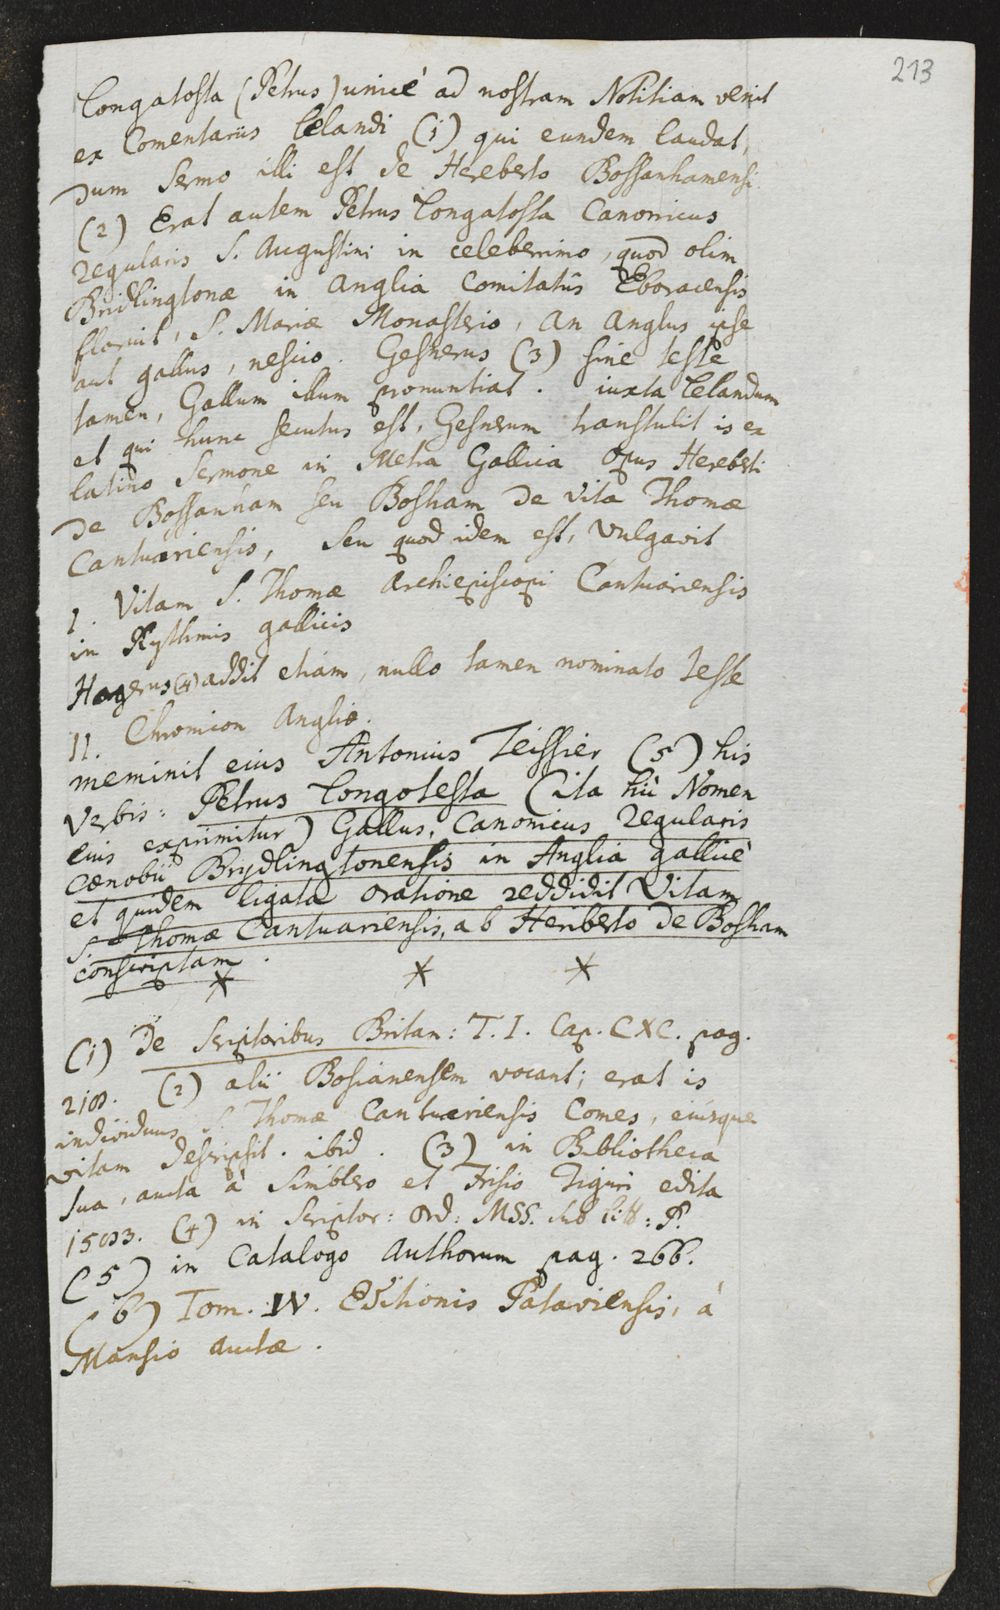 213
Longatosta (Petrus) unicè ad nostram Notitiam venit
ex Comentariis Lelandi (1) qui eundem laudat,
dum Sermo illi est de Hereberto Bossanhamensi
(2) Erat autem Petrus Longatosta Canonicus
Regularis S. Augustini in celeberrimo, quod olim
Bridlingtonæ in Anglia Comitatûs Eboracensis
floruit, S. Mariæ Monasterio, an Anglus ipse
aut gallus, nescio. Gesnerus (3) sine teste
tamen, Gallum illum pronuntiat. iuxta Lelandum
et qui hunc secutus est, Gesnerum transtulit is ex
latino Sermone in Metra Gallica Opus Hereberti
de Bossanham seu Bosham de Vita Thomæ
Cantuariensis, seu quod idem est, vulgavit
I. Vitam S. Thomæ Archiepiscopi Cantuariensis
in Rythmis gallicis
Hagerus (4) addit etiam, nullo tamen nominato teste
II. Chronicon Angliæ.
meminit eius Antonius Teissier (5) his
verbis: Petrus Longotesta (ita hic Nomen
eius exprimitur) Gallus, Canonicus Regularis
cænobii Brydlingtonensis in Anglia gallicè
et quidem ligata oratione reddidit Vitam
S. Thomæ Cantuariensis, ab Heriberto de Bosham
conscriptam.
* * *
(1) De Scriptoribus Britan: T. I. Cap. CXC. pag.
218. (2) alii Bosianensem vocant; erat is
individuus S. Thomæ Cantuariensis Comes, eiusque
vitam descripsit. ibid. (3) in Bibliotheca
sua, aucta à Simblero et Frisio Tiguri edita
1583. (4) in Scriptor: Ord: MSS. sub litt: P.
(5) in Catalogo Authorum pag. 266.
(6) Tom. IV. Editionis Pataviensis, à
Mansio auctæ.